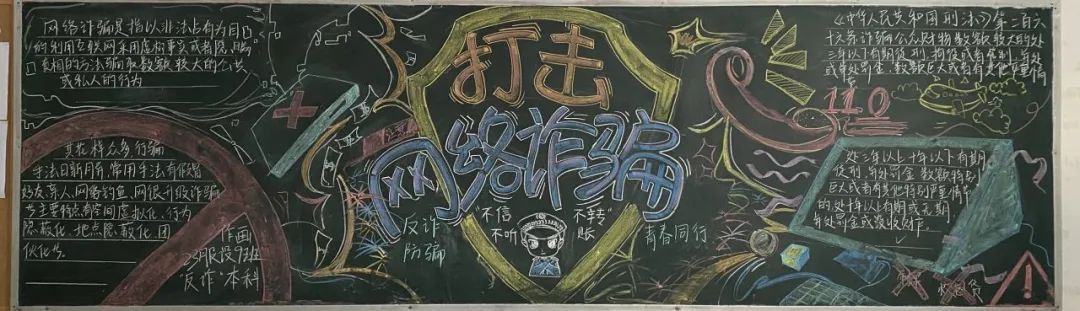 网络诈骗是指以非法占有为目
的利用互联网采用虚构事实或者隐瞒
真相的方法骗取数额较大的公共
或私人的行为
其花样众多行骗
手法日新月异,常用手法有假冒
好友亲人,网络钓鱼,网银升级诈骗
主要特点有空间虚拟化,行为
隐蔽化,地点隐蔽化,团
伙化等。
作画
服设
"反诈"本科
打击
网络诈骗
反诈
防骗
"不信
不听
不转"
账
青春同行
《中华人民共和国刑法》第二百六
十六条诈骗公私财物数额较大的处
三年以下有期徒刑、拘役或者管制,并处
或单处罚金,数额巨大或者有其他严重情
110
处三年以上十年以下有期
徒刑,并处罚金,数额特别
巨大或者有其他特别严重情节
的,处十年以上有期或无期
并处罚金或没收财产。